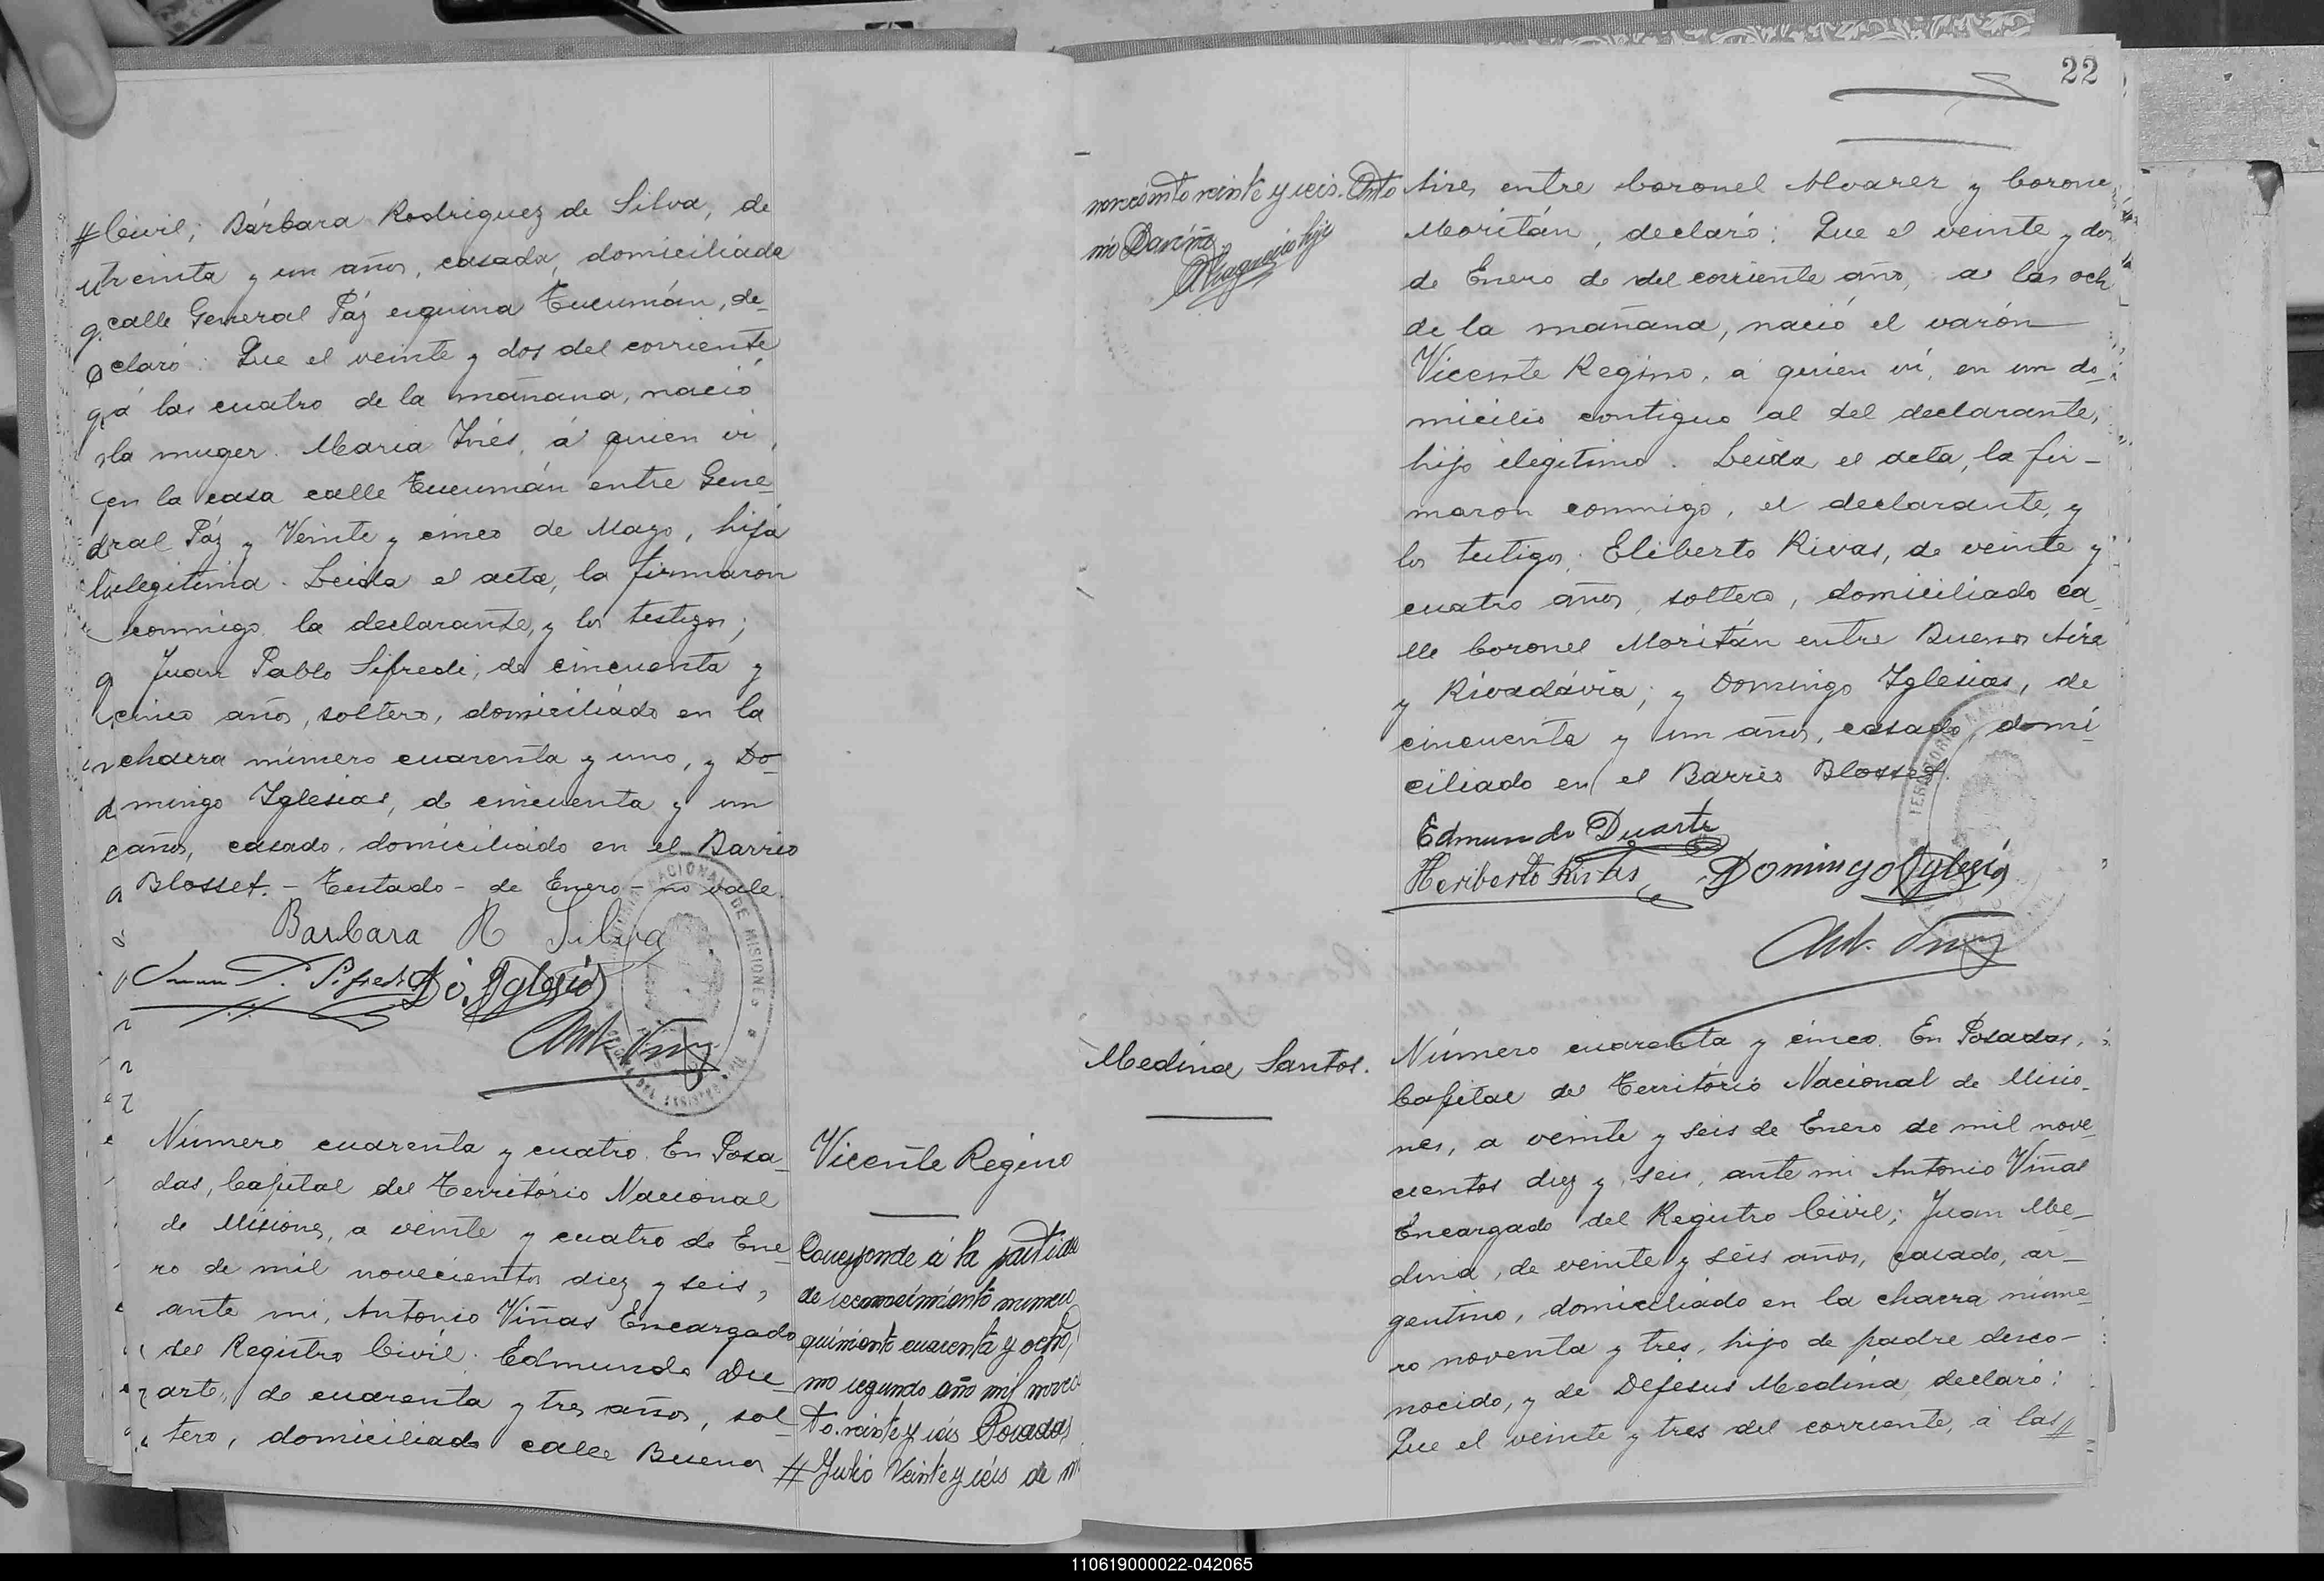 # Civil; Bárbara Rodriguez de Silva, de
treinta y un años, casada, domiciliada
calle General Páz esquina Tucumán, de-
claró: Que el veinte y dos del corriente
á las cuatro de la mañana, nació
la muger Maria Inés, á quien vi,
en la casa calle Tucumán entre Gene-
ral Páz y Veinte y cinco de Mayo, hija
ilegitima. Leida el acta, la firmaron
conmigo la declarante, y los testigos;
Juan Pablo Sifredi, de cincuenta y
cinco años, soltero, domiciliado en la
chacra número cuarenta y uno, y Do-
mingo Iglesias, de cincuenta y un
años, casado, domiciliado en el Barrio
Blosset. - Testado - de Enero - no vale.
Barbara R Silva
Juan P. Sifredi Do. Yglesias
Ant. Viñas
Número cuarenta y cuatro. En Posa-
das, Capital del Território Nacional
de Misiones, a veinte y cuatro de Ene-
ro de mil novecientos diez y seis,
ante mi, Antonio Viñas Encargado
del Registro Civil: Edmundo Du-
arte, de cuarenta y tres años, sol-
tero, domiciliado calle Buenos
Vicente Regino
Corresponde á la partida
de reconocimiento numero
quiniento cuarenta y ocho,
mo segundo año mil noveci
to veinte y seis Posadas
# Julio Veinte y seis de m
22
noveciento veinte y seis. Anto
nio
Aires entre Coronel Alvarez y Corone
Moritán, declaró: Que el veinte y dos
de Enero de del corriente año, a las och
de la mañana, nació el varón
Vicente Regino, a quien vi, en un do-
micilio contiguo al del declarante,
hijo ilegitimo. Leida el acta, la fir-
maron conmigo, el declarante, y
los testigos; Eliberto Rivas, de veinte y
cuatro años, soltero, domiciliado ca-
lle Coronel Moritán entre Buenos Aire
y Rivadávia; y Domingo Iglesias, de
cincuenta y un años, casado, domi-
ciliado en el Barrio Blosset.
Edmundo Duarte
Heriberto Rivas Domingo Yglesias
Ant. Viñas
Medina Santos.
Número cuarenta y cinco. En Posadas,
Capital del Território Nacional de Misio-
nes, a veinte y seis de Enero de mil nove-
cientos diez y seis, ante mi Antonio Viñas
Encargado del Registro Civil; Juan Me-
dina, de veinte y séis años, casado, ar-
gentino, domiciliado en la chacra núme-
ro noventa y tres, hijo de padre desco-
nocido, y de Dejesus Medina, declaró:
Que el veinte y tres del corriente, á las #
110619000022-042065